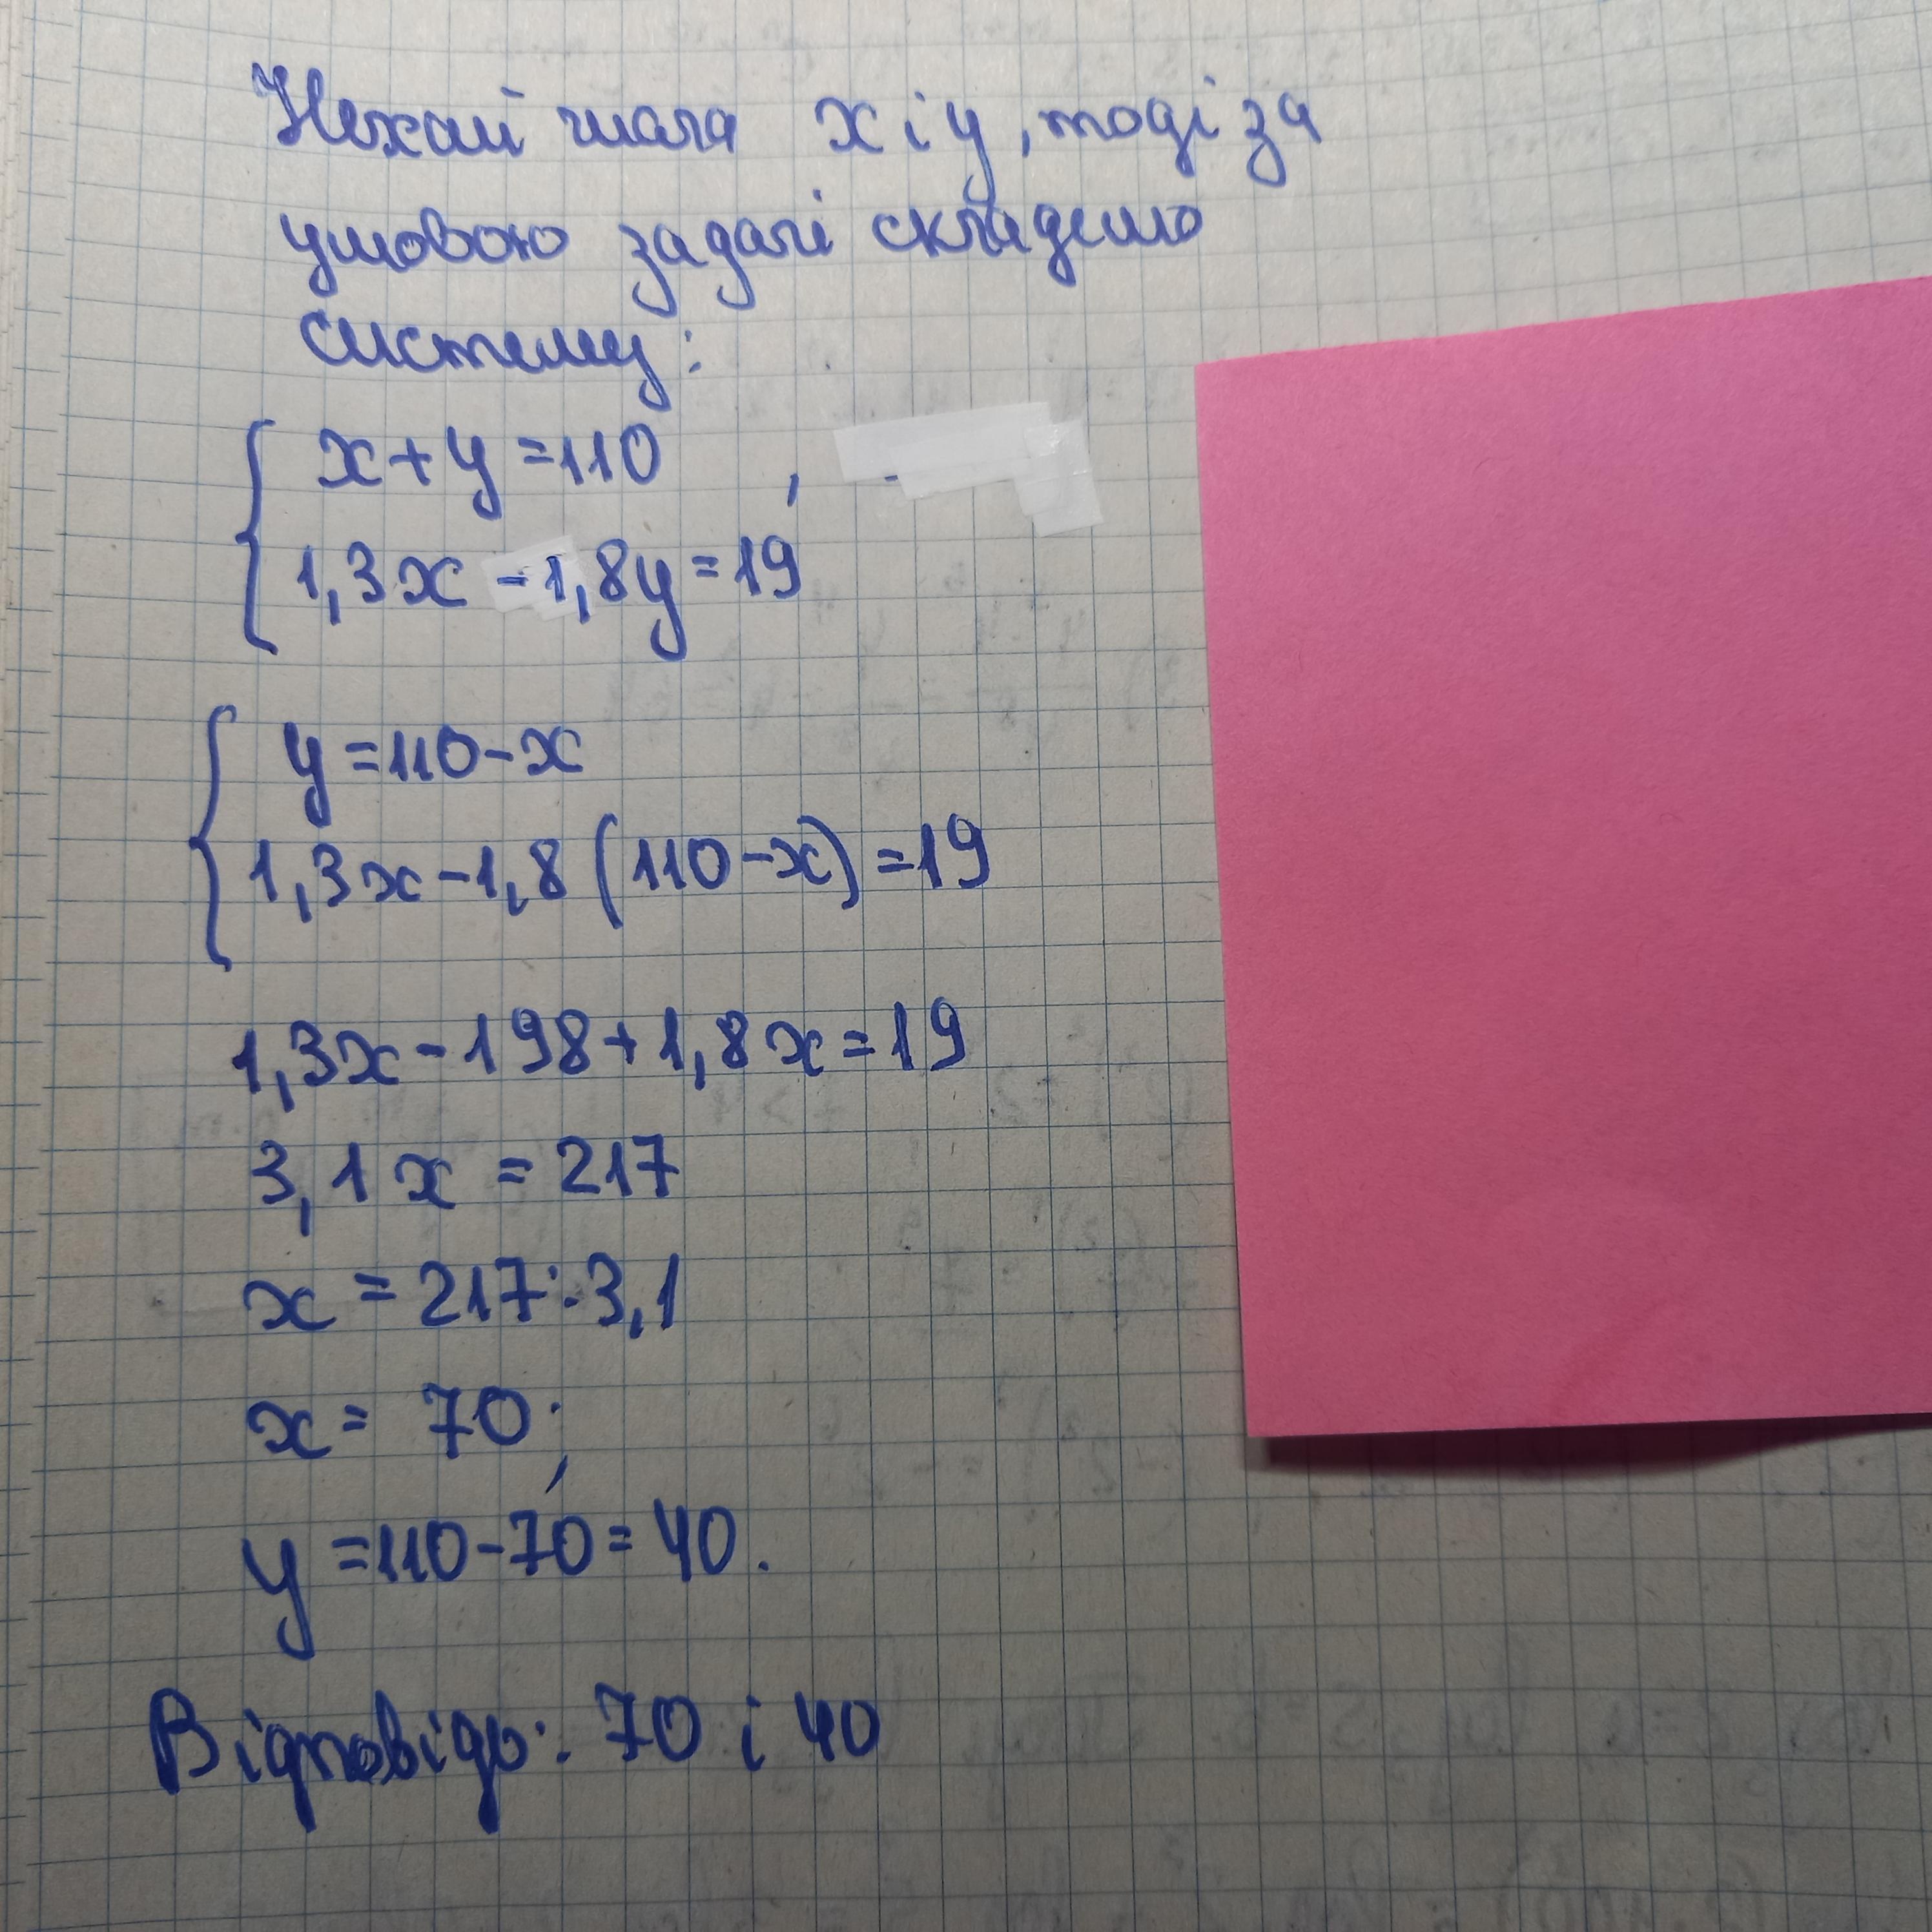 Нехай числа x і y, тоді за
умовою задачі складемо
систему:
x+y=110
1,3x-1,8y=19,
y=110-x
1,3x-1,8(110-x)=19
1,3x-198+1,8x=19
3,1x=217
x=217:3,1
x=70;
y=110-70=40.
Відповідь: 70 і 40